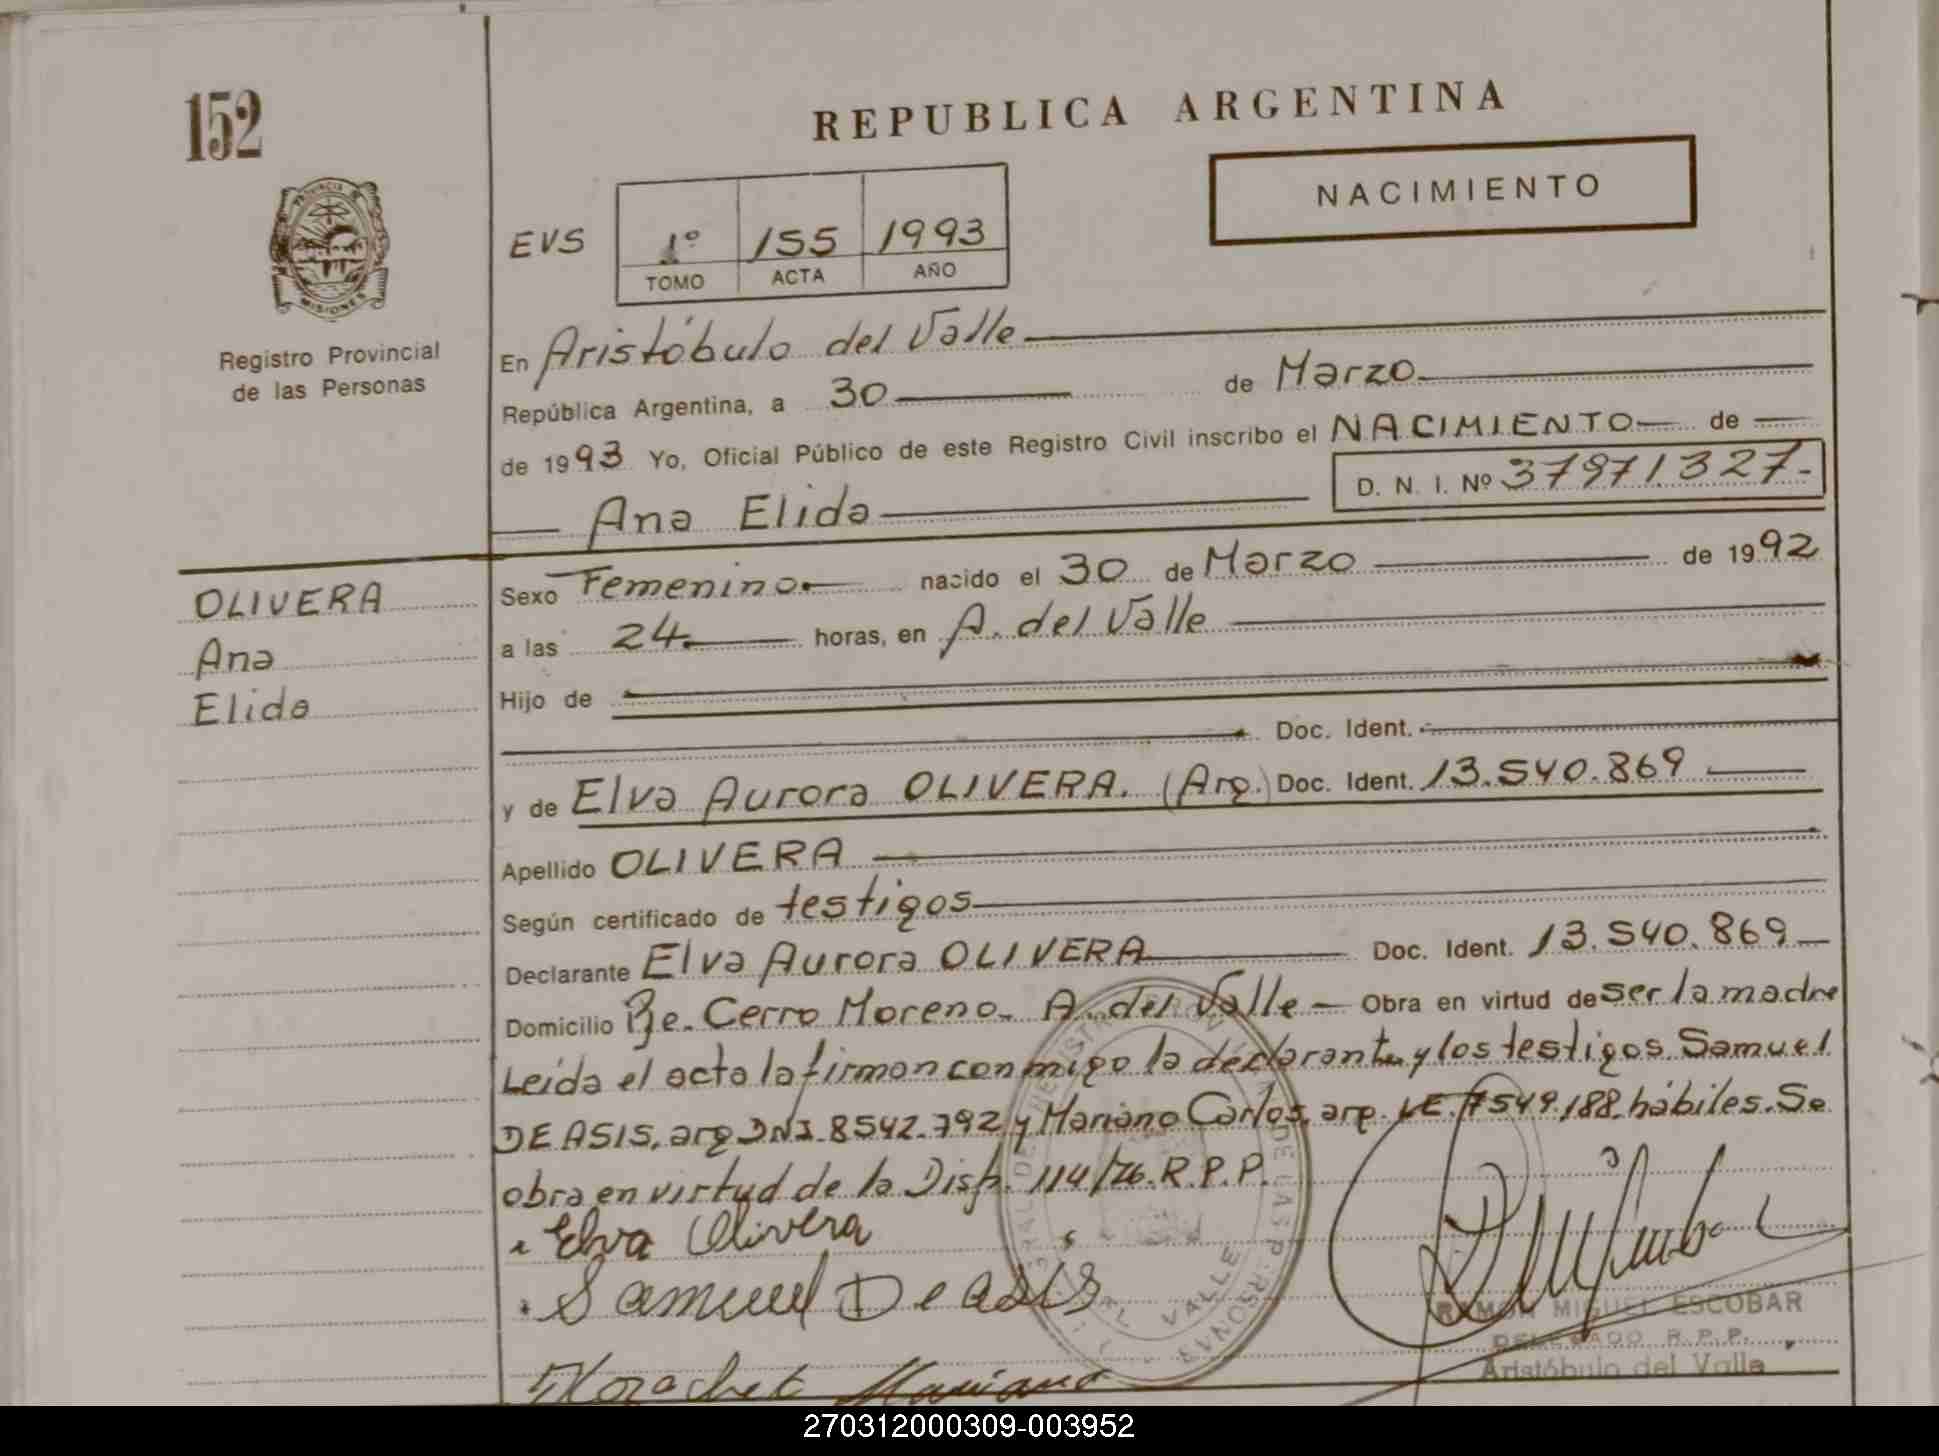 152
REPUBLICA ARGENTINA
NACIMIENTO
PROVINCIA DE
MISIONES
Registro Provincial
de las Personas
EVS
1º 155 1993
TOMO ACTA AÑO
En Aristóbulo del Valle
República Argentina, a 30 de Marzo
de 1993 Yo, Oficial Público de este Registro Civil inscribo el NACIMIENTO de
Ana Elida D. N. I. Nº 37971.327.-
OLIVERA
Ana
Elida
Sexo Femenino. nacido el 30 de Marzo de 1992
a las 24. horas, en A. del Valle
Hijo de
Doc. Ident.
y de Elva Aurora OLIVERA. (Arg.) Doc. Ident. 13.540.869
Apellido OLIVERA
Según certificado de testigos
Declarante Elva Aurora OLIVERA Doc. Ident. 13.540.869
Domicilio Pje. Cerro Moreno. A. del Valle - Obra en virtud de ser la madre
Leída el acta la firman conmigo la declarante y los testigos Samuel
DE ASIS, arg DNI. 8542.792 y Mariano Carlos, arg. LE. 7549.188 hábiles. Se
obra en virtud de la Disp. 114/76. R.P.P.
Elva Olivera
Samuel De asis
Mariano
RAMON MIGUEL ESCOBAR
DELEGADO R.P.P.
Aristóbulo del Valle
270312000309-003952